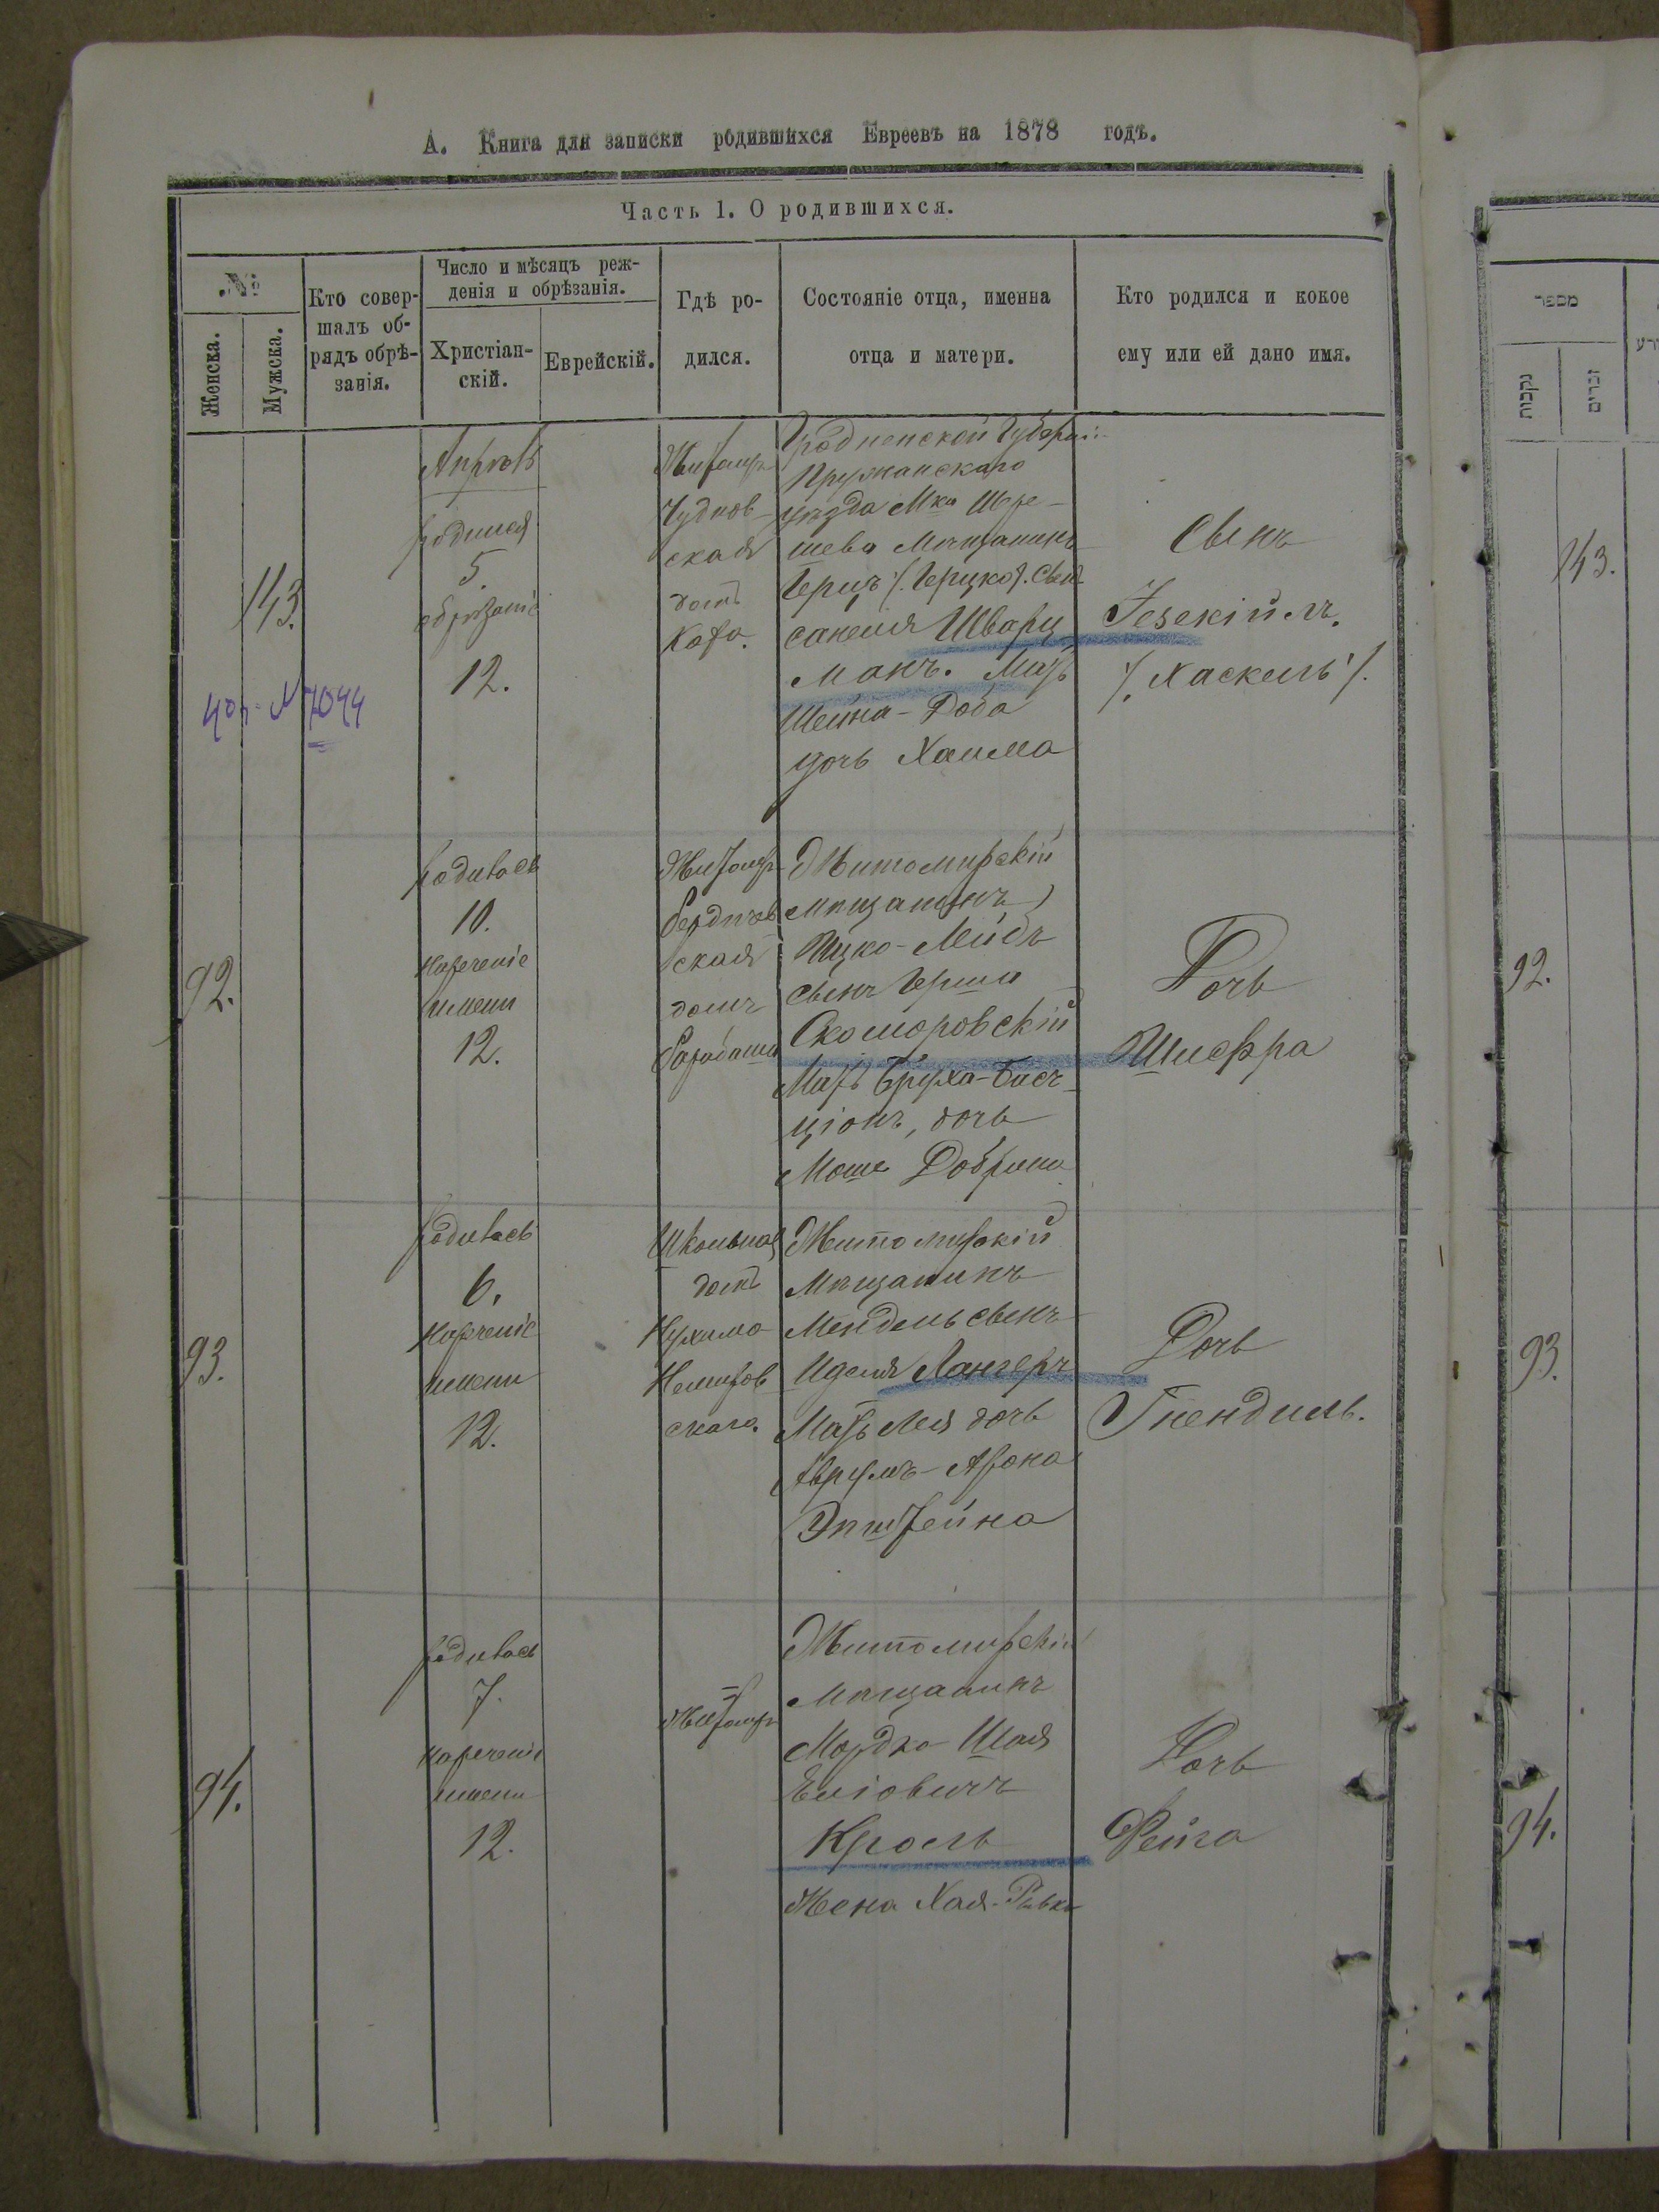 А. Книга для записки родившихся Евреевъ на 1878 годъ.
Часть 1. О родившихся.
№
Женска.
Мужска.
Кто совер-
шалъ об-
рядъ обрѣ-
занія.
Число и мѣсяцъ реж-
денія и обрѣзанія.
Христіан-
скій.
Еврейскій.
Гдѣ ро-
дился.
Состояніе отца, именна
отца и матери.
Кто родился и кокое
ему или ей дано имя.
143.
№ 7044
Апрѣль
родился
5.
обрѣзаніе
12.
Житомір
Чуднов-
ская
домъ
Кота.
Гродненской Губерніи
Пружанскаго
уѣзда Мка Шере-
шева Мѣщанинъ
Герцъ /. Герцко /. Сынъ
санеля Шварц
манъ. Мать
Шейна-Доба
дочь Хаима
Сынъ
Іезекіиль.
/. Хаскель /.
92.
родилась
10.
нареченіе
имени
12.
Житомір
Бердичев
ская
домъ
Барабаша
Житомирскій
мѣщанинъ
Ицко-Лейбъ
сынъ Герша
Скоморовскій
Мать Бруха-Бас-
ціонъ, дочь
Моше Добрина
Дочь
Шифра
93.
родилась
6.
нареченіе
имени
12.
Школьная
домъ
Нухима
Немиров
скаго.
Житомирскій
Мѣщанинъ
Мендель сынъ
Иделя Лангеръ
Мать Лея дочь
Аврумъ-Арона
Эпштейна
Дочь
Гнендиль.
94.
родилась
7.
нареченіе
имени
12.
Житомір
Житомирскій
мѣщанинъ
Мордко Шая
Еліовичъ
Кроль
Жена Хая-Ривка
Дочь
Фейга
מספר
נקבות
זכרים
143.
92.
93.
94.